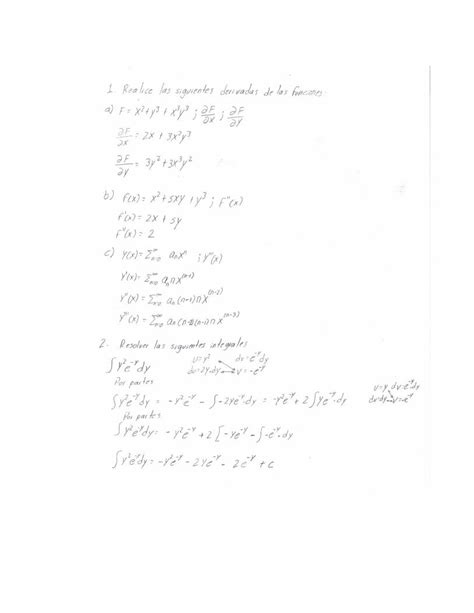 1. Realice las siguientes derivadas de las funciones:
a) F = x²+y³ + x³y³ ; ∂F/∂x ; ∂F/∂y
∂F/∂x = 2x + 3x²y³
∂F/∂y = 3y² + 3x³y²
b) F(x) = x² + 5xy + y³ ; F''(x)
f'(x) = 2x + 5y
F''(x) = 2
c) Y(x) = Σ∞n=0 anxⁿ ; Y'''(x)
Y'(x) = Σ∞n=0 an n x⁽ⁿ⁻¹⁾
Y''(x) = Σ∞n=0 an (n-1) n x⁽ⁿ⁻²⁾
Y'''(x) = Σ∞n=0 an (n-2)(n-1) n x⁽ⁿ⁻³⁾
2. Resolver las siguientes integrales
∫y²e⁻ʸdy u=y² dv=e⁻ʸdy
Por partes du=2y·dy v=-e⁻ʸ
∫y²e⁻ʸdy = -y²e⁻ʸ - ∫-2ye⁻ʸdy = -y²e⁻ʸ + 2∫ye⁻ʸ·dy u=y dv=e⁻ʸdy
Por partes du=dy v=-e⁻ʸ
∫y²e⁻ʸdy = -y²e⁻ʸ + 2[-ye⁻ʸ - ∫-e⁻ʸ·dy
∫y²e⁻ʸdy = -y²e⁻ʸ - 2ye⁻ʸ - 2e⁻ʸ + c